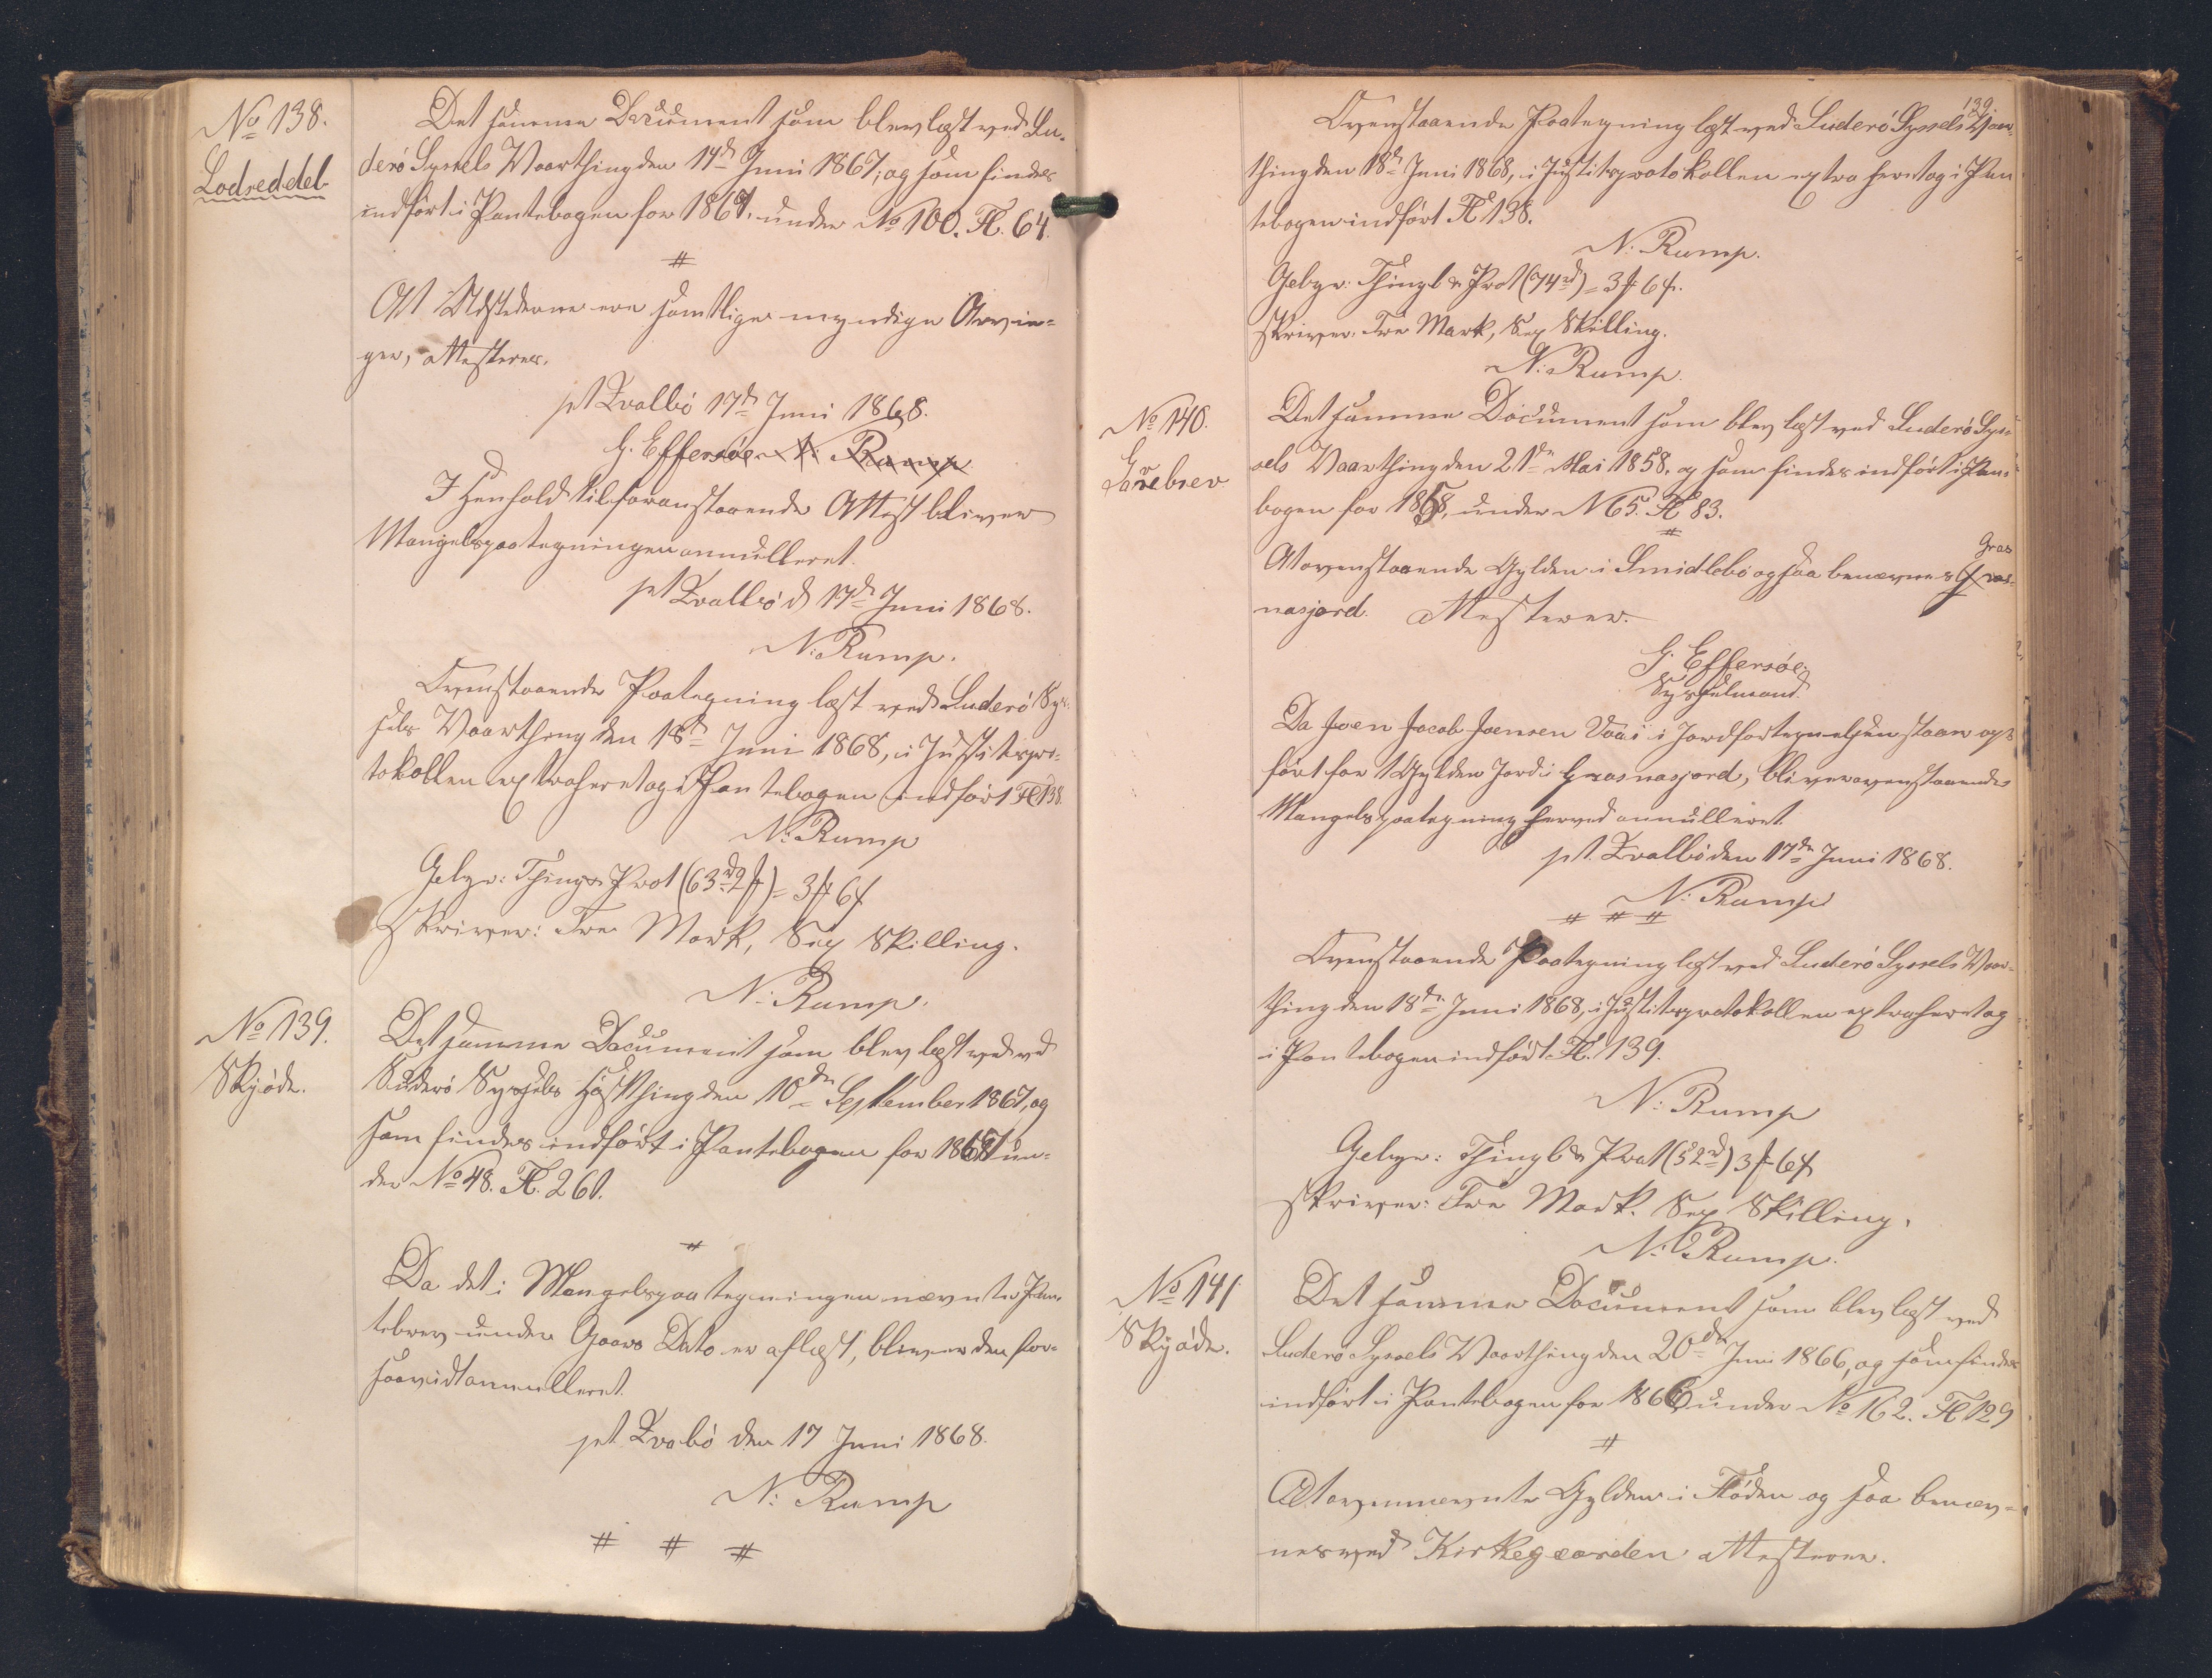 No 138.
Lodseddel
Det samme Document som blev læst ved Su-
derö Syssels Vaarthing den 14de Juni 1867, og som findes
indført i Pantebogen for 1867. under No 100. Fl. 64.
#
At Udstederne ere samtlige myndige Arvin-
ger, attesteres.
pt Qvalbö 17de Juni 1868.
G. Effersøe N: Rump
I Henhold til foranstaaende Attest bliver
Mangelspaategningen annulleret.
pt Qvalbö d 17de Juni 1868.
N: Rump.
Ovenstaaende Paategning læst ved Suderö Sys-
sels Vaarthing den 18de Juni 1868, i Justitspro-
tokollen extraheret og i Pantebogen indført Fl 138.
N: Rump
Gebyr: Thingl & Prot (63rd 2f) = 3 f 6 f
skriver: Tre Mark, Sex Skilling.
N: Rump.
No 139.
Skjöde.
Det samme Document som blev læst ved ved
Suderö Syssels Høstthing den 10de September 1867, og
som findes indført i Pantebogen for 1867 un-
der No 48. Fl. 261.
#
Da det i Mangelspaategningen nævnte Pan-
tebrev under Gaars Dato er aflæst, bliver den for-
saavidt annulleret.
pt. Qvabö den 17 Juni 1868.
N: Rump
# # #
139.
Ovenstaaende Paategning læst ved Suderö Syssels Vaar-
thing den 18de Juni 1868, i Justitsprotokollen extraheret og i Pan
tebogen indført Fl 138.
N: Rump.
Gebyr: Thingl & Prot (74rd) = 3 f 6 f.
skriver: Tre Mark, Sex Skilling.
N: Rump.
No 140.
Gavebrev
Det samme Document som blev læst ved Suderö Sys-
sels Vaarthing den 21de Mai 1858. og som findes indført i Pan-
bogen for 1858, under N 65. Fl 83.
#
Gras
At ovenstaaende Gylden i Smidlebö ogsaa benævnes Gras-
nasjord. attesterer.
G. Effersøe.
Sysselmand.
Da Joen Jacob Joensen Vaai i Jordfortegnelsen staar op-
ført for 1 Gylden Jord i Grasnasjord, bliver ovenstaaende
Mangelspaategning herved annulleret.
pt. Qvalbö den 17de Juni 1868.
N: Rump
# # #
Ovenstaaende Paategning læst ved Suderö Syssels Vaar-
thing den 18de Juni 1868, i Justitsprotokollen extraheret og
i Pantebogen indført Fl. 139.
N: Rump
Gebyr: Thingl & Prot (52rd) 3 f 6 f
skriver: Tre Mark. Sex Skilling.
N: Rump.
No 141
Skjöde.
Det samme Document som blev læst ved
Suderö Syssels Vaarthing den 20de Juni 1866, og som findes
indført i Pantebogen for 1866 under No 162. Fl 129
#
At ovennævnte Gylden i Flöden ogsaa benæv-
nes ved Kirkegaarden attesterer.